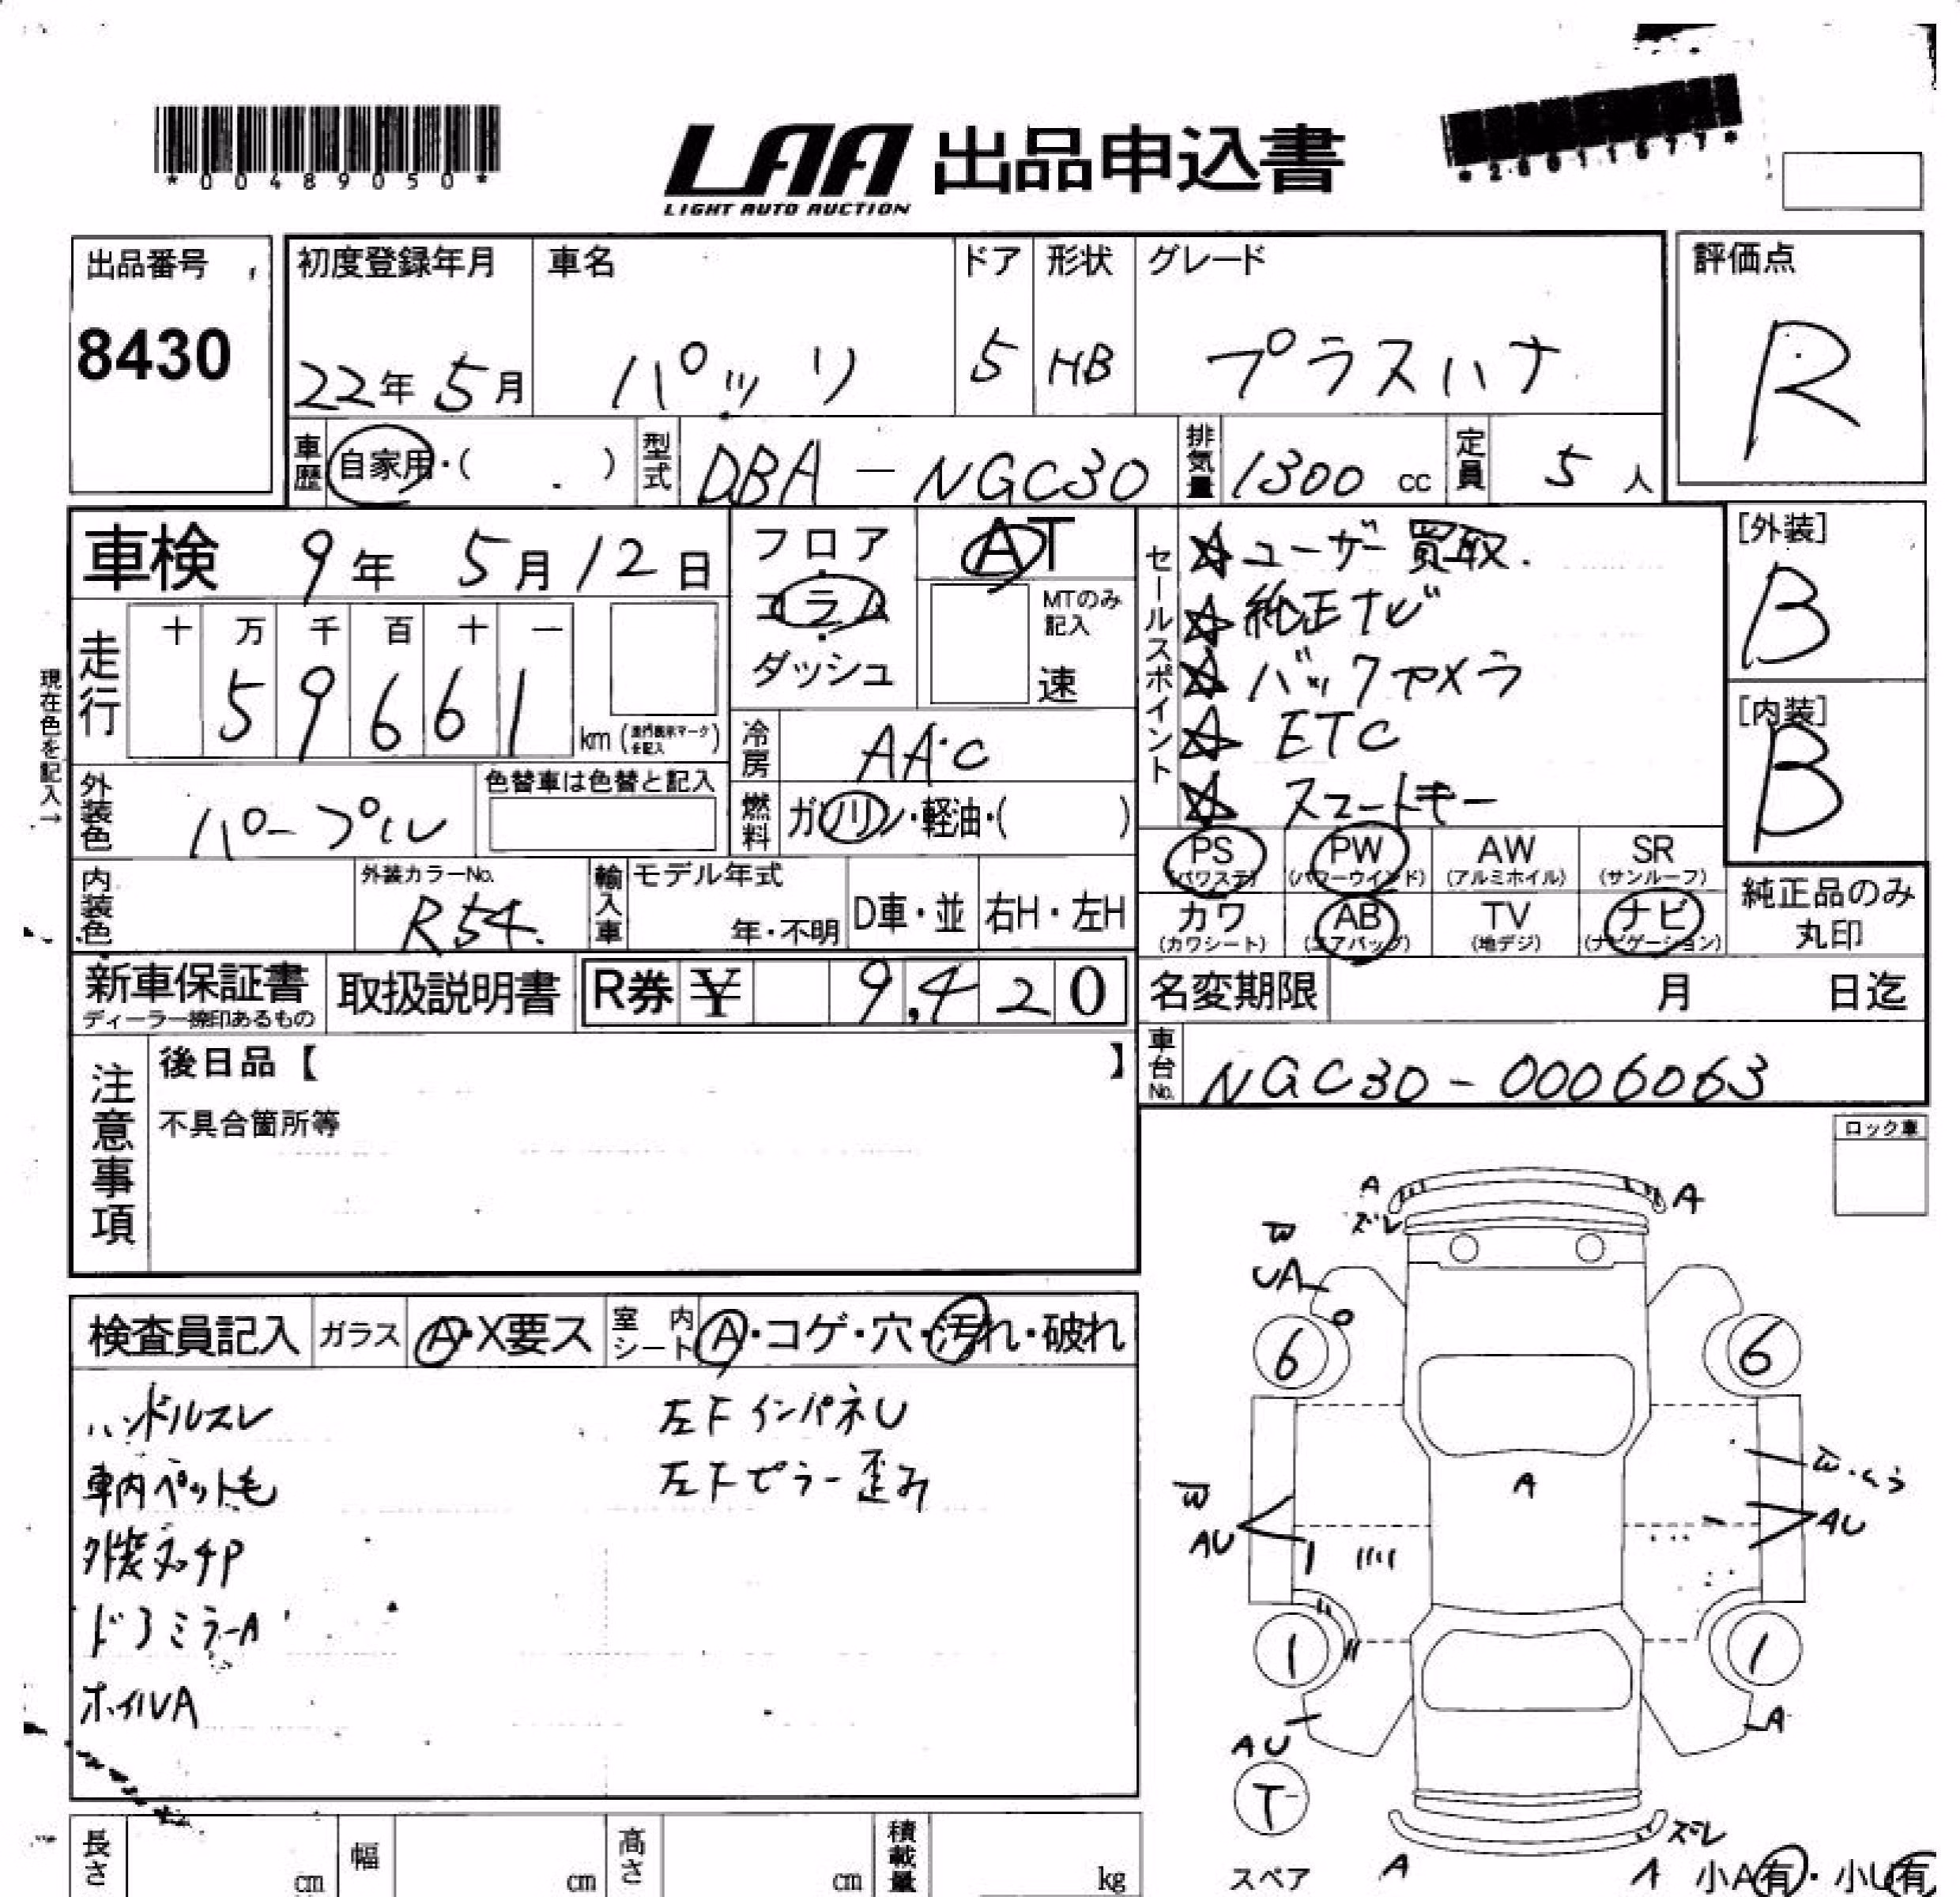 *00489050*
LAA 出品申込書
LIGHT AUTO AUCTION
*26011677*
出品番号
8430
初度登録年月 車名 ドア 形状 グレード
22年 5月 パッソ 5 HB プラスハナ
評価点
R
車歴 自家用・( ) 型式 DBA-NGC30 排気量 1300 cc 定員 5 人
車検 9年 5月 12日
フロア
コラム
ダッシュ
AT
MTのみ記入
速
セールスポイント
☆ユーザー買取.
☆純正ナビ
☆バックカメラ
☆ETC
☆スマートキー
[外装]
B
[内装]
B
現在色を記入→
走行 十 万 千 百 十 一
59661 km
冷房 AAC
外装色 パープル 色替車は色替と記入
燃料 ガソリン・軽油・( )
内装色 外装カラーNo. R54.
輸入車 モデル年式 年・不明 D車・並 右H・左H
PS (パワステ) PW (パワーウインド) AW (アルミホイル) SR (サンルーフ)
カワ (カワシート) AB (エアバッグ) TV (地デジ) ナビ (ナビゲーション)
純正品のみ
丸印
新車保証書 取扱説明書 R券 ¥ 9,420
ディーラー捺印あるもの
名変期限 月 日迄
車台No. NGC30-0006063
注意事項
後日品【 】
不具合箇所等
ロック車
検査員記入 ガラス A・X要ス 室内シート A・コゲ・穴・汚れ・破れ
ハンドルスレ 左FインパネU
車内ペット毛 左Fピラー歪み
外装タッチP
ドアミラーA
ホイルA
A A
ズレ
W
UA
6 6
A
W
AU
AU
1 1
AU
A
T
スペア
ズレ
A A 小A有・小U有
長さ cm 幅 cm 高さ cm 積載量 kg